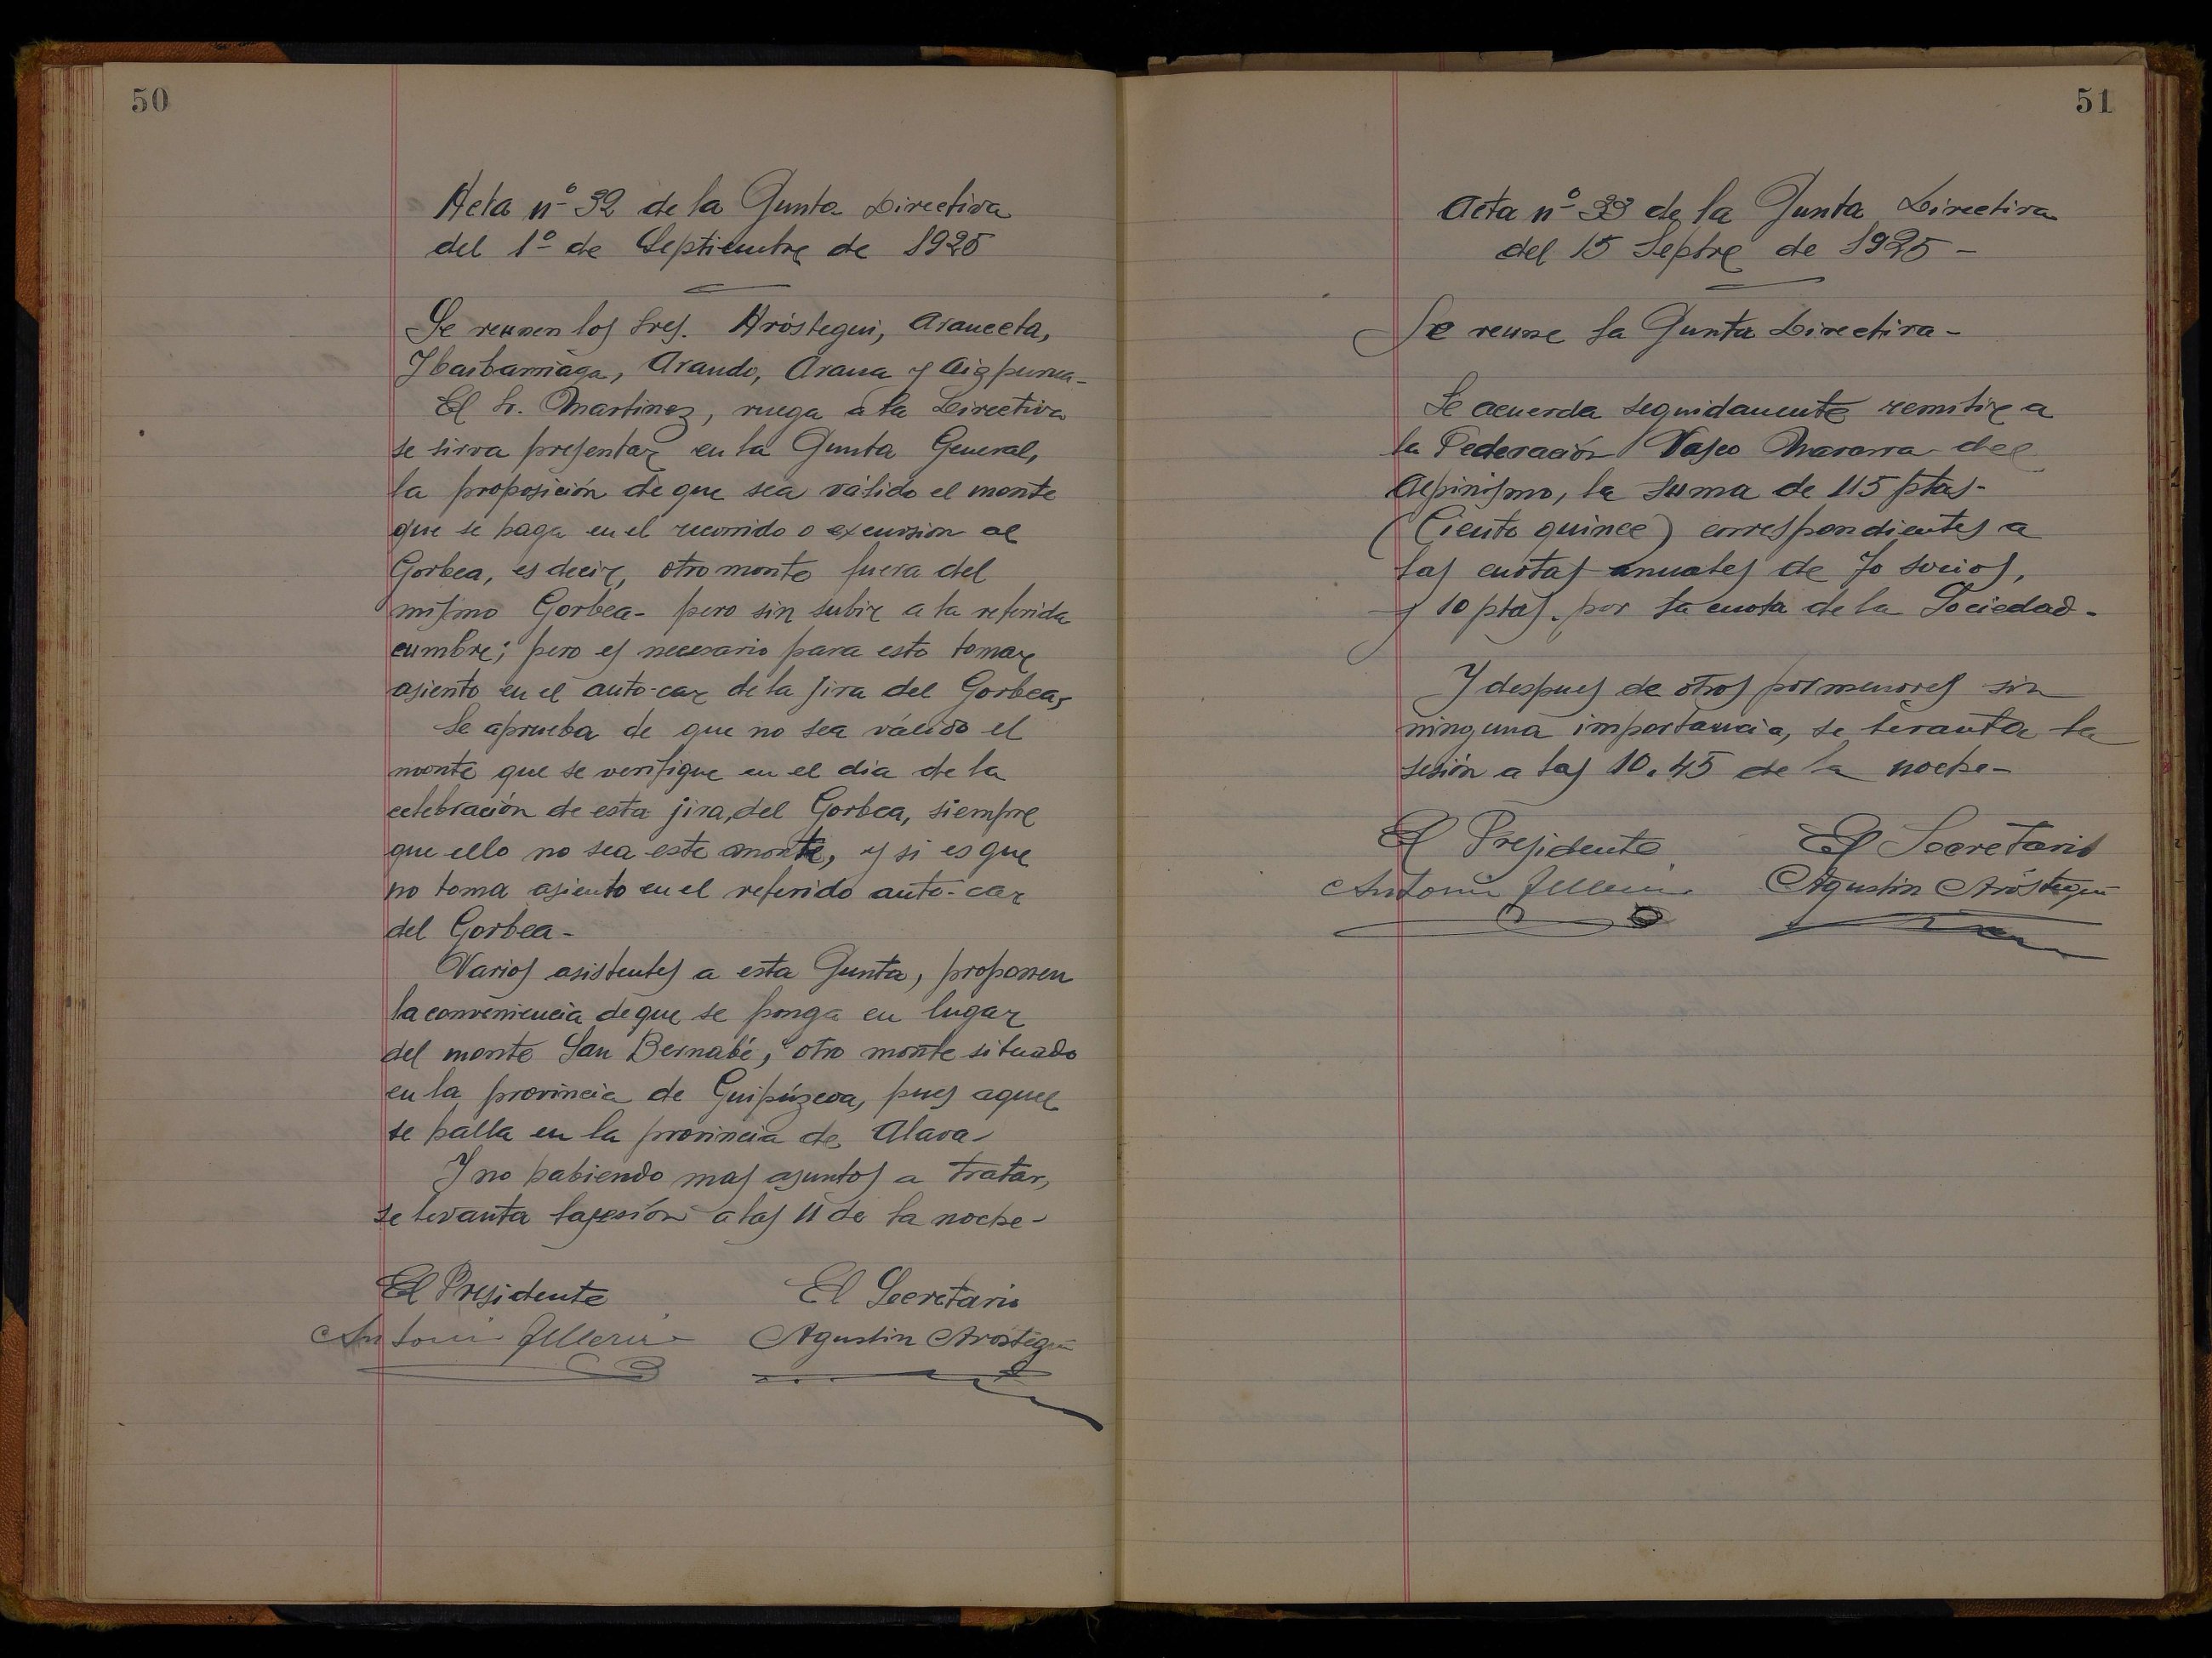 50
Acta nº 32 de la Junta Directiva
del 1º de Septiembre de 1925
Se reunen los Sres. Aróstegui, Aranceta,
Ybaibarriaga, Arando, Arana y Aizpurua-
El Sr. Martinez, ruega a la Directiva
se sirva presentar en la Junta General,
la proposición de que sea válido el monte
que se haga en el recorrido o excursion al
Gorbea, es decir, otro monte fuera del
mismo Gorbea- pero sin subir a la referida
cumbre; pero es necesario para esto tomar
asiento en el auto-car de la jira del Gorbea,
Se aprueba de que no sea válido el
monte que se verifique en el dia de la
celebración de esta jira, del Gorbea, siempre
que ello no sea este monte, y si es que
no toma asiento en el referido auto-car
del Gorbea-
Varios asistentes a esta Junta, proponen
la conveniencia de que se ponga en lugar
del monte San Bernabé, otro monte situado
en la provincia de Guipúzcoa, pues aquel
se halla en la provincia de Alava-
Y no habiendo mas asuntos a tratar,
se levanta la sesión a las 11 de la noche-
El Presidente El Secretario
Antonio Agustin Aróstegui
51
Acta nº 33 de la Junta Directiva
del 15 Septre de 1925-
Se reune la Junta Directiva-
Se acuerda seguidamente remitir a
la Federación Vasco Navarra del
Alpinismo, la suma de 115 ptas-
(Ciento quince) correspondientes a
las cuotas anuales de 70 socios,
y 10 ptas. por la cuota de la Sociedad-
Y despues de otros pormenores sin
ninguna importancia, se levanta la
sesión a las 10.45 de la noche-
El Presidente El Secretario
Antonio Agustin Aróstegui